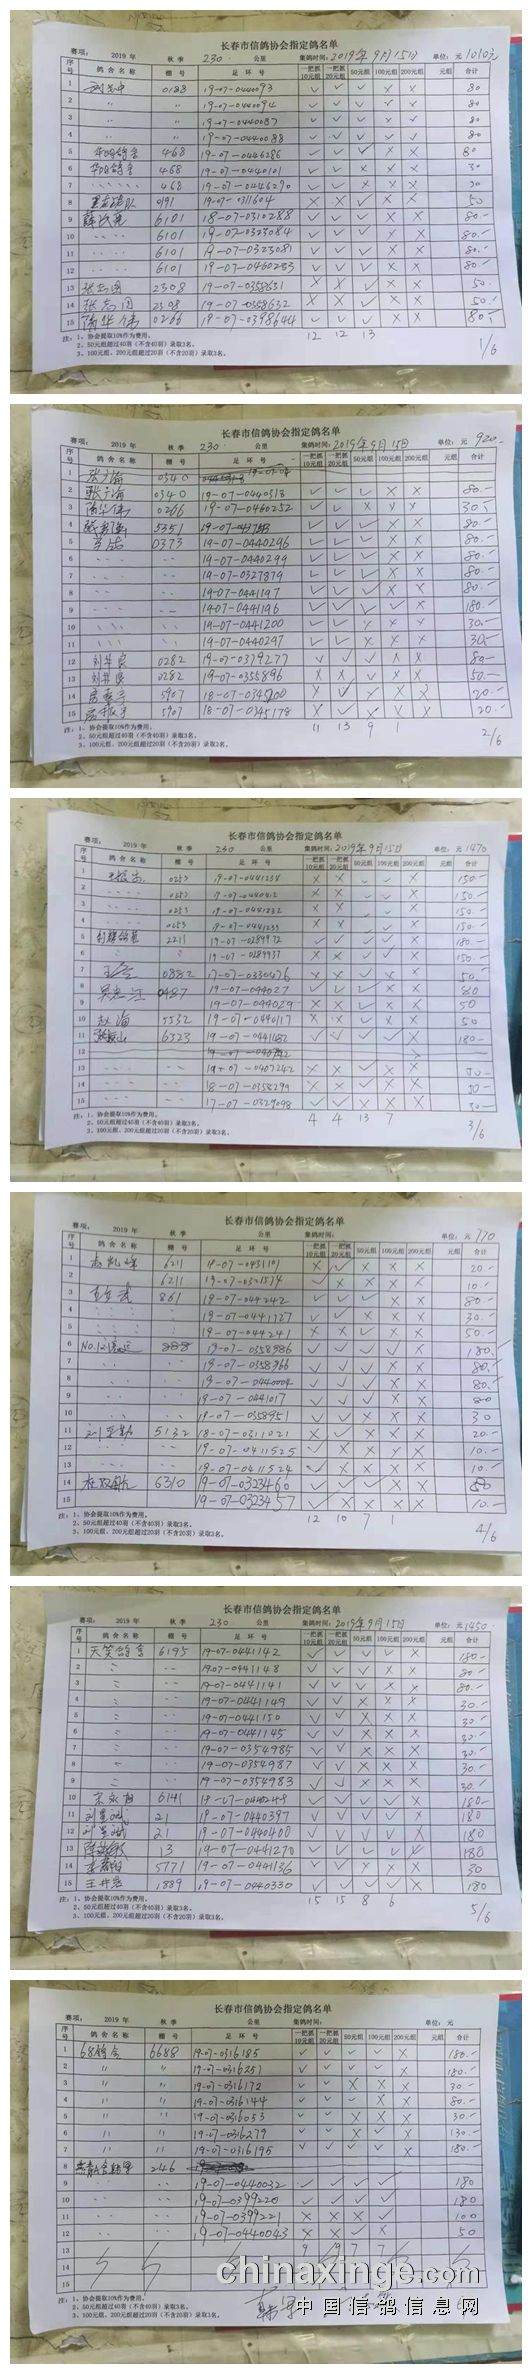 长春市信鸽协会指定鸽名单
赛项： 2019 年 秋 季 230 公里 集鸽时间：2019年9月15日 单位：元 1010元
序号 鸽舍名称 棚号 足环号 一把抓10元组 一把抓20元组 50元组 100元组 200元组 元组 合计
1 0188 19-07-0440093 √ √ √ × × 80
2 〃 〃 19-07-0440094 √ √ √ × × 80
3 〃 〃 19-07-0440087 √ √ √ × × 80
4 〃 〃 19-07-0440088 √ √ √ × × 80
5 468 19-07-0446286 √ √ √ × × 80
6 468 19-07-0440101 √ √ × × × 30
7 468 19-07-0446290 √ √ × × × 30
8 0191 19-07-0311604 × × √ × × 50
9 6101 18-07-0310288 √ √ √ × × 80
10 6101 19-07-0323084 √ √ √ × × 80
11 6101 19-07-0323081 √ √ √ × × 80
12 6101 19-07-0460233 √ √ √ × × 80
13 张志国 2308 19-07-0358631 × × √ × × 50
14 张志国 2308 19-07-0358632 × × √ × × 50
15 陶华伟 0266 19-07-0398644 √ √ √ × × 80
12 12 13
注：1、协会提取10%作为费用。
2、50元组超过40羽（不含40羽）录取3名。
3、100元组、200元组超过20羽（不含20羽）录取3名。
1/6
长春市信鸽协会指定鸽名单
赛项： 2019 年 秋 季 230 公里 集鸽时间：2019年9月15日 单位：元 920
序号 鸽舍名称 棚号 足环号 一把抓10元组 一把抓20元组 50元组 100元组 200元组 元组 合计
1 张广海 0340
2 张广海 0340 19-07-0440318 √ √ √ × × 80
3 陶华伟 0266 19-07-0460252 √ √ × × × 30
4 5351 √ √ √ × × 80
5 0373 19-07-0440296 √ √ √ × × 80
6 19-07-0440299 √ √ √ × × 80
7 19-07-0327879 √ √ √ × × 80
8 19-07-0441197 √ √ √ × × 80
9 19-07-0441196 √ √ √ √ × 180
10 19-07-0441200 √ √ × × × 30
11 19-07-0440297 √ √ × × × 30
12 刘井良 0282 19-07-0379277 √ √ √ × × 80
13 刘井良 0282 19-07-0355896 × × √ × × 50
14 5907 × √ × × × 20
15 5907 18-07-0345178 × √ × × × 20
11 13 9 1
注：1、协会提取10%作为费用。
2、50元组超过40羽（不含40羽）录取3名。
3、100元组、200元组超过20羽（不含20羽）录取3名。
2/6
长春市信鸽协会指定鸽名单
赛项： 2019 年 秋 季 230 公里 集鸽时间：2019年9月15日 单位：元 1470
序号 鸽舍名称 棚号 足环号 一把抓10元组 一把抓20元组 50元组 100元组 200元组 元组 合计
1 0253 19-07-0441234 × × √ √ × 150
2 0253 × × √ √ × 150
3 0253 19-07-0441232 × × √ √ × 150
4 0253 19-07-0441233 × × √ √ × 150
5 2211 19-07-0289972 √ √ √ √ × 180
6 19-07-0289937 × × √ √ × 150
7 0882 17-07-0330476 × × √ × × 50
8 吴志江 0427 19-07-044027 √ √ √ × × 80
9 19-07-044029 × × √ × × 50
10 赵海 5532 19-07-0440117 × × √ × × 50
11 6523 19-07-0441482 √ √ √ √ × 180
12
13 19-07-0407242 × × √ × ×
14 18-07-0358299 × × √ × ×
15 17-07-0329098 √ √ × × × 30
4 4 13 7
注：1、协会提取10%作为费用。
2、50元组超过40羽（不含40羽）录取3名。
3、100元组、200元组超过20羽（不含20羽）录取3名。
3/6
长春市信鸽协会指定鸽名单
赛项： 2019 年 秋 季 公里 集鸽时间： 单位：元 770
序号 鸽舍名称 棚号 足环号 一把抓10元组 一把抓20元组 50元组 100元组 200元组 元组 合计
1 6211 19-07-0431101 × √ × × × 20
2 6211 19-07-0321514 √ × × × × 10
3 861 19-07-044242 √ √ √ × × 80
4 19-07-0441127 √ √ × × × 30
5 19-07-044241 × × √ × × 50
6 19-07-0358986 √ √ √ √ × 180
7 19-07-0358966 √ √ √ × × 80
8 19-07-0440004 √ √ √ × × 80
9 19-07-0441017 √ √ √ × × 80
10 19-07-0358951 √ √ × × × 30
11 5132 18-07-0311021 × √ × × × 20
12 19-07-0411525 √ × × × × 10
13 19-07-0411524 √ × × × × 10
14 6310 19-07-0323460 √ √ √ × × 80
15 19-07-0323457 √ × × × × 10
12 10 7 1
注：1、协会提取10%作为费用。
2、50元组超过40羽（不含40羽）录取3名。
3、100元组、200元组超过20羽（不含20羽）录取3名。
4/6
长春市信鸽协会指定鸽名单
赛项： 2019 年 秋 季 230 公里 集鸽时间：2019年9月15日 单位：元 1450
序号 鸽舍名称 棚号 足环号 一把抓10元组 一把抓20元组 50元组 100元组 200元组 元组 合计
1 天笑鸽舍 6195 19-07-0441142 √ √ √ √ × 180
2 19-07-0441148 √ √ √ × × 80
3 19-07-0441141 √ √ √ × × 80
4 19-07-0441149 √ √ × × × 30
5 19-07-0441150 √ √ × × × 30
6 19-07-0441145 √ √ × × × 30
7 19-07-0354985 √ √ × × × 30
8 19-07-0354987 √ √ × × × 30
9 19-07-0354983 √ √ × × × 30
10 6141 19-07-0440248 √ √ √ √ × 180
11 21 19-07-0440397 √ √ √ √ × 180
12 21 19-07-0440400 √ √ √ √ × 180
13 13 19-07-0441270 √ √ √ √ × 180
14 5771 19-07-0441136 √ √ × × × 30
15 1889 19-07-0440330 √ √ √ √ × 180
15 15 8 6
注：1、协会提取10%作为费用。
2、50元组超过40羽（不含40羽）录取3名。
3、100元组、200元组超过20羽（不含20羽）录取3名。
5/6
长春市信鸽协会指定鸽名单
赛项： 2019 年 秋 季 公里 集鸽时间： 单位：元
序号 鸽舍名称 棚号 足环号 一把抓10元组 一把抓20元组 50元组 100元组 200元组 元组 合计
1 68鸽舍 6688 19-07-0316185 √ √ √ √ × 180
2 〃 〃 19-07-0316251 √ √ √ √ × 180
3 〃 〃 19-07-0316172 √ √ × × × 30
4 〃 〃 19-07-0316144 √ √ √ × × 80
5 〃 〃 19-07-0316053 √ √ × × × 30
6 〃 〃 19-07-0316279 √ √ × √ × 130
7 〃 〃 19-07-0316195 √ √ √ √ × 180
8 246
9 19-07-0440032 √ √ √ √ 180
10 19-07-0399220 √ √ √ √ 180
11 19-07-0399221 × × × √ × 100
12 19-07-0440043 × × √ × 50
13 9 9 7 7
14
15
注：1、协会提取10%作为费用。
2、50元组超过40羽（不含40羽）录取3名。
3、100元组、200元组超过20羽（不含20羽）录取3名。
chinaxinge.com
中国信鸽信息网